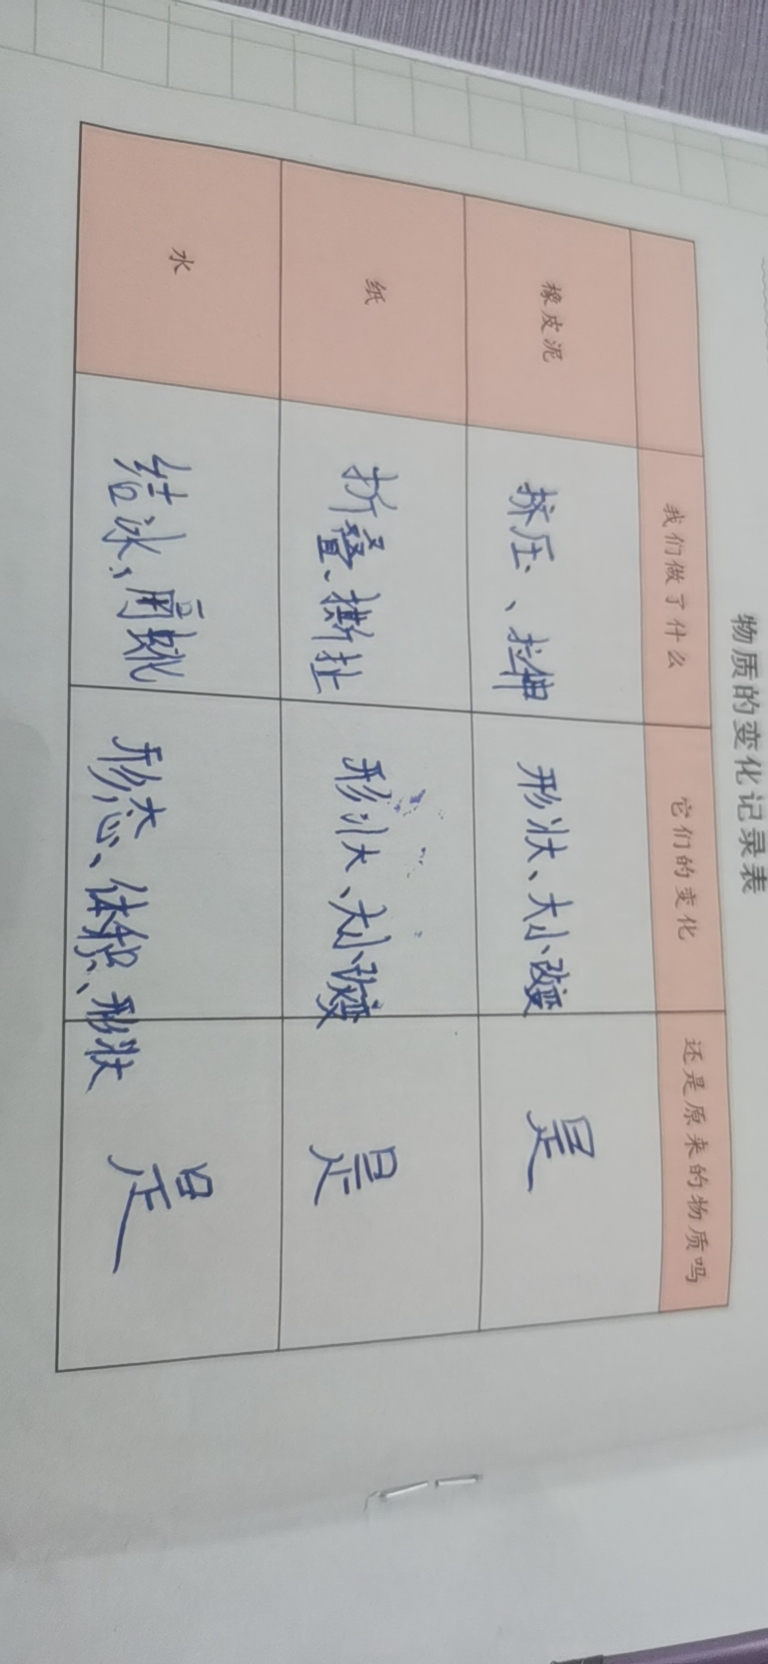 物质的变化记录表
我们做了什么 它们的变化 还是原来的物质吗
橡皮泥 挤压、拉伸 形状、大小改变 是
纸 折叠、撕扯 形状、大小改变 是
水 结冰、 形态、体积、形状 是